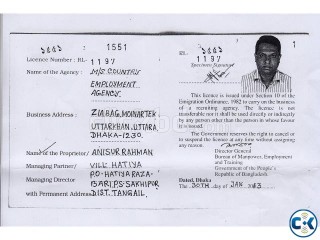 1551
Licence Number : RL- 1197
Name of the Agency : M/S COUNTRY
EMPLOYMENT
AGENCY.
Business Address : ZIABAG, MOINARTEK
UTTARKHAN, UTTARA
DHAKA-1230.
Name of the Proprietor/ ANISUR RAHMAN
Managing Partner/ VILL HATIYA
Managing Director P.O-HATIYA RAZA-
BARI, P.S SAKHIPUR
with Permanent Address DIST. TANGAIL.
RL-
1197
Specimen Signature
This licence is issued under Section 10 of the
Emigration Ordinance, 1982 to carry on the business
of a recruiting agency. The licence is not
transferable nor it shall be used directly or indirectly
by any person other than the person in whose favour
it is issued.
The Government reserves the right to cancel or
to suspend the licence at any time without assigning
any reason.
Director General
Bureau of Manpower, Employment
and Training
Government of the People's
Republic of Bangladesh.
Dated, Dhaka
The 30TH day of JAN